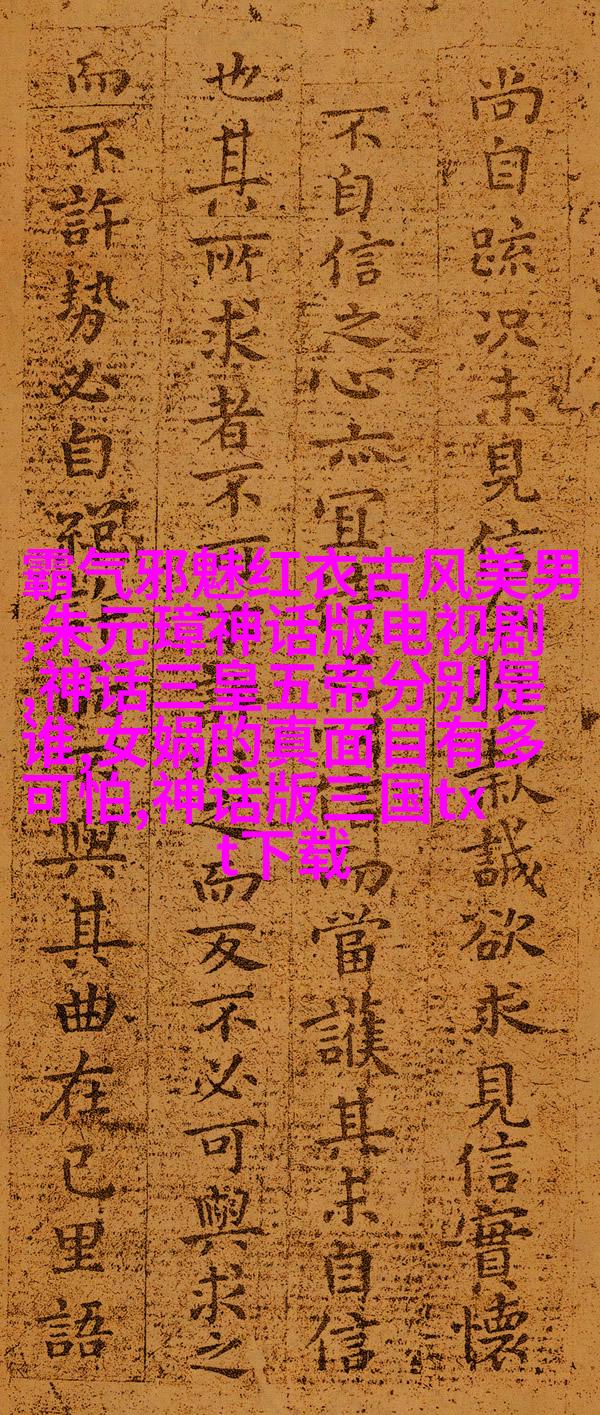 尚自踈况未見信誠欲求見信實懷
不自信之心亦宜當護其未自信
也其所求者不可而反不必可與求之
而不許勢必自與其曲在己里語
霸气邪魅红衣古风美男
,朱元璋神话版电视剧
,神话三皇五帝分别是
谁,女娲的真面目有多
可怕,神话版三国tx
t下载